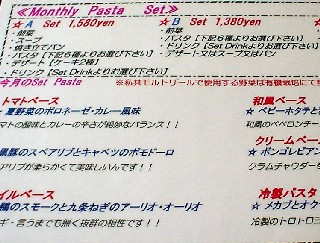 ≪Monthly Pasta Set≫
☆ A Set 1,580yen
・前菜
・スープ
・焼き立てパン
・パスタ【下記6種よりお選び下さい】
・デザート【ケーキ2種】
・ドリンク【Set Drinkよりお選び下さい】
☆ B Set 1,380yen
・前菜
・パスタ【下記6種よりお選び下さい
・ドリンク【Set Drinkよりお選び下
・デザート又はスープ又はパン
今月のSet Pasta
※
で使用する野菜は有機栽培にて
トマトベース
夏野菜のボロネーゼ・カレー風味
マトの酸味とカレーの辛さが絶妙なバランス！！
黒豚のスペアリブとキャベツのポモドーロ
アリブが柔らかくて美味しいんです！！
イルベース
鴨のスモークと九条ねぎのアーリオ・オーリオ
ギ・言うまでも無く抜群の相性です！！
和風ベース
☆ ベビーホタテと
和風のペペロンチー
クリームベース
☆ ボンゴレビアン
クラムチャウダー
冷製パスタ
☆ メカブとオク
冷製のトロトロ